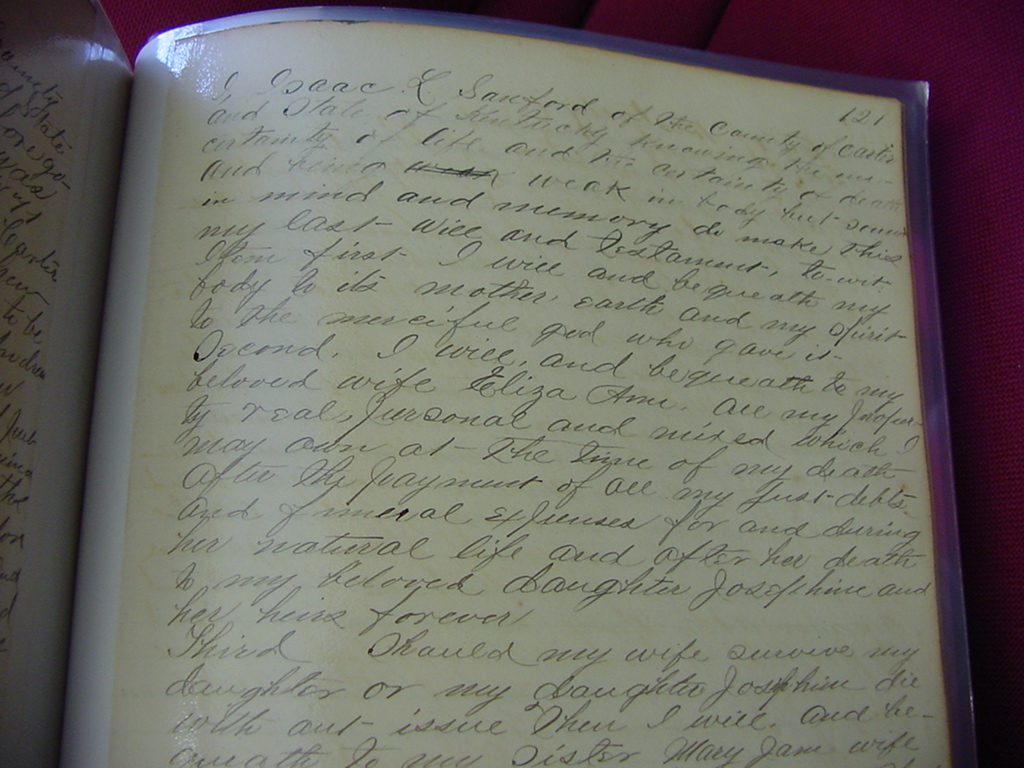 121
I Isaac L Sanford of the County of Carter
and State of Kentucky knowing the un-
certainty of life and the certainty of death
and being weak in body but sound
in mind and memory do make this
my last will and testament, to-wit
Item first I will and bequeath my
body to its mother, earth and my spirit
to the merciful god who gave it
Second, I will, and bequeath to my
beloved wife Eliza Ann, all my proper-
ty real, personal and mixed which I
may own at the time of my death
after the payment of all my just debts
and funeral expenses for and during
her natural life and after her death
to my beloved daughter Josephine and
her heirs forever
Third Should my wife survive my
daughter or my daughter Josephine die
with out issue Then I will, and be-
queath to my sister Mary Jane wife